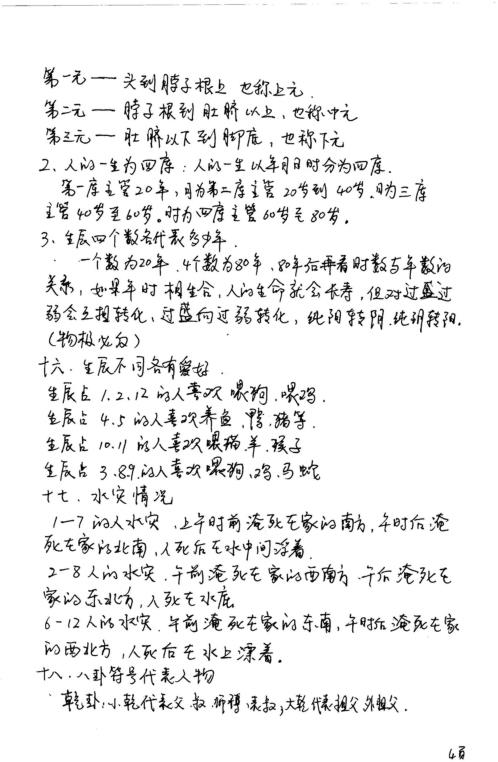 第一元——头到脖子根上 也称上元.
第二元——脖子根到肚脐以上,也称中元
第三元——肚脐以下到脚底,也称下元
2、人的一生为四序:人的一生以年月日时分为四序.
第一序主管20年,月为第二序主管20岁到40岁.日为三序
主管40岁至60岁。时为四序主管60岁至80岁。
3、生辰四个数各代表多少年.
一个数为20年.4个数为80年.80年后再看时数与年数的
关系,如果年时相生合,人的生命就会长寿,但对过盛过
弱会互相转化,过盛向过弱转化,纯阳转阴.纯阴转阳.
(物极必反)
十六.生辰不同各有爱好.
生辰占1.2.12的人喜欢喂狗.喂鸡.
生辰占4.5的人喜欢养鱼.鸭.猪等.
生辰占10.11的人喜欢喂猫.羊.猴子
生辰占3.8.9.的人喜欢喂狗.鸡.马蛇
十七.水灾情况
1—7的人水灾,上午时前淹死在家的南方,午时后淹
死在家的北南,人死后在水中间浮着.
2-8人的水灾.午前淹死在家的西南方 午后淹死在
家的东北方,人死在水底
6-12人的水灾.午前淹死在家的东南,午时后淹死在家
的西北方,人死后在水上漂着。
十八.八卦符号代表人物
乾卦:小乾代表父.叔.师傅.表叔;大乾代表祖父.外祖父.
4页